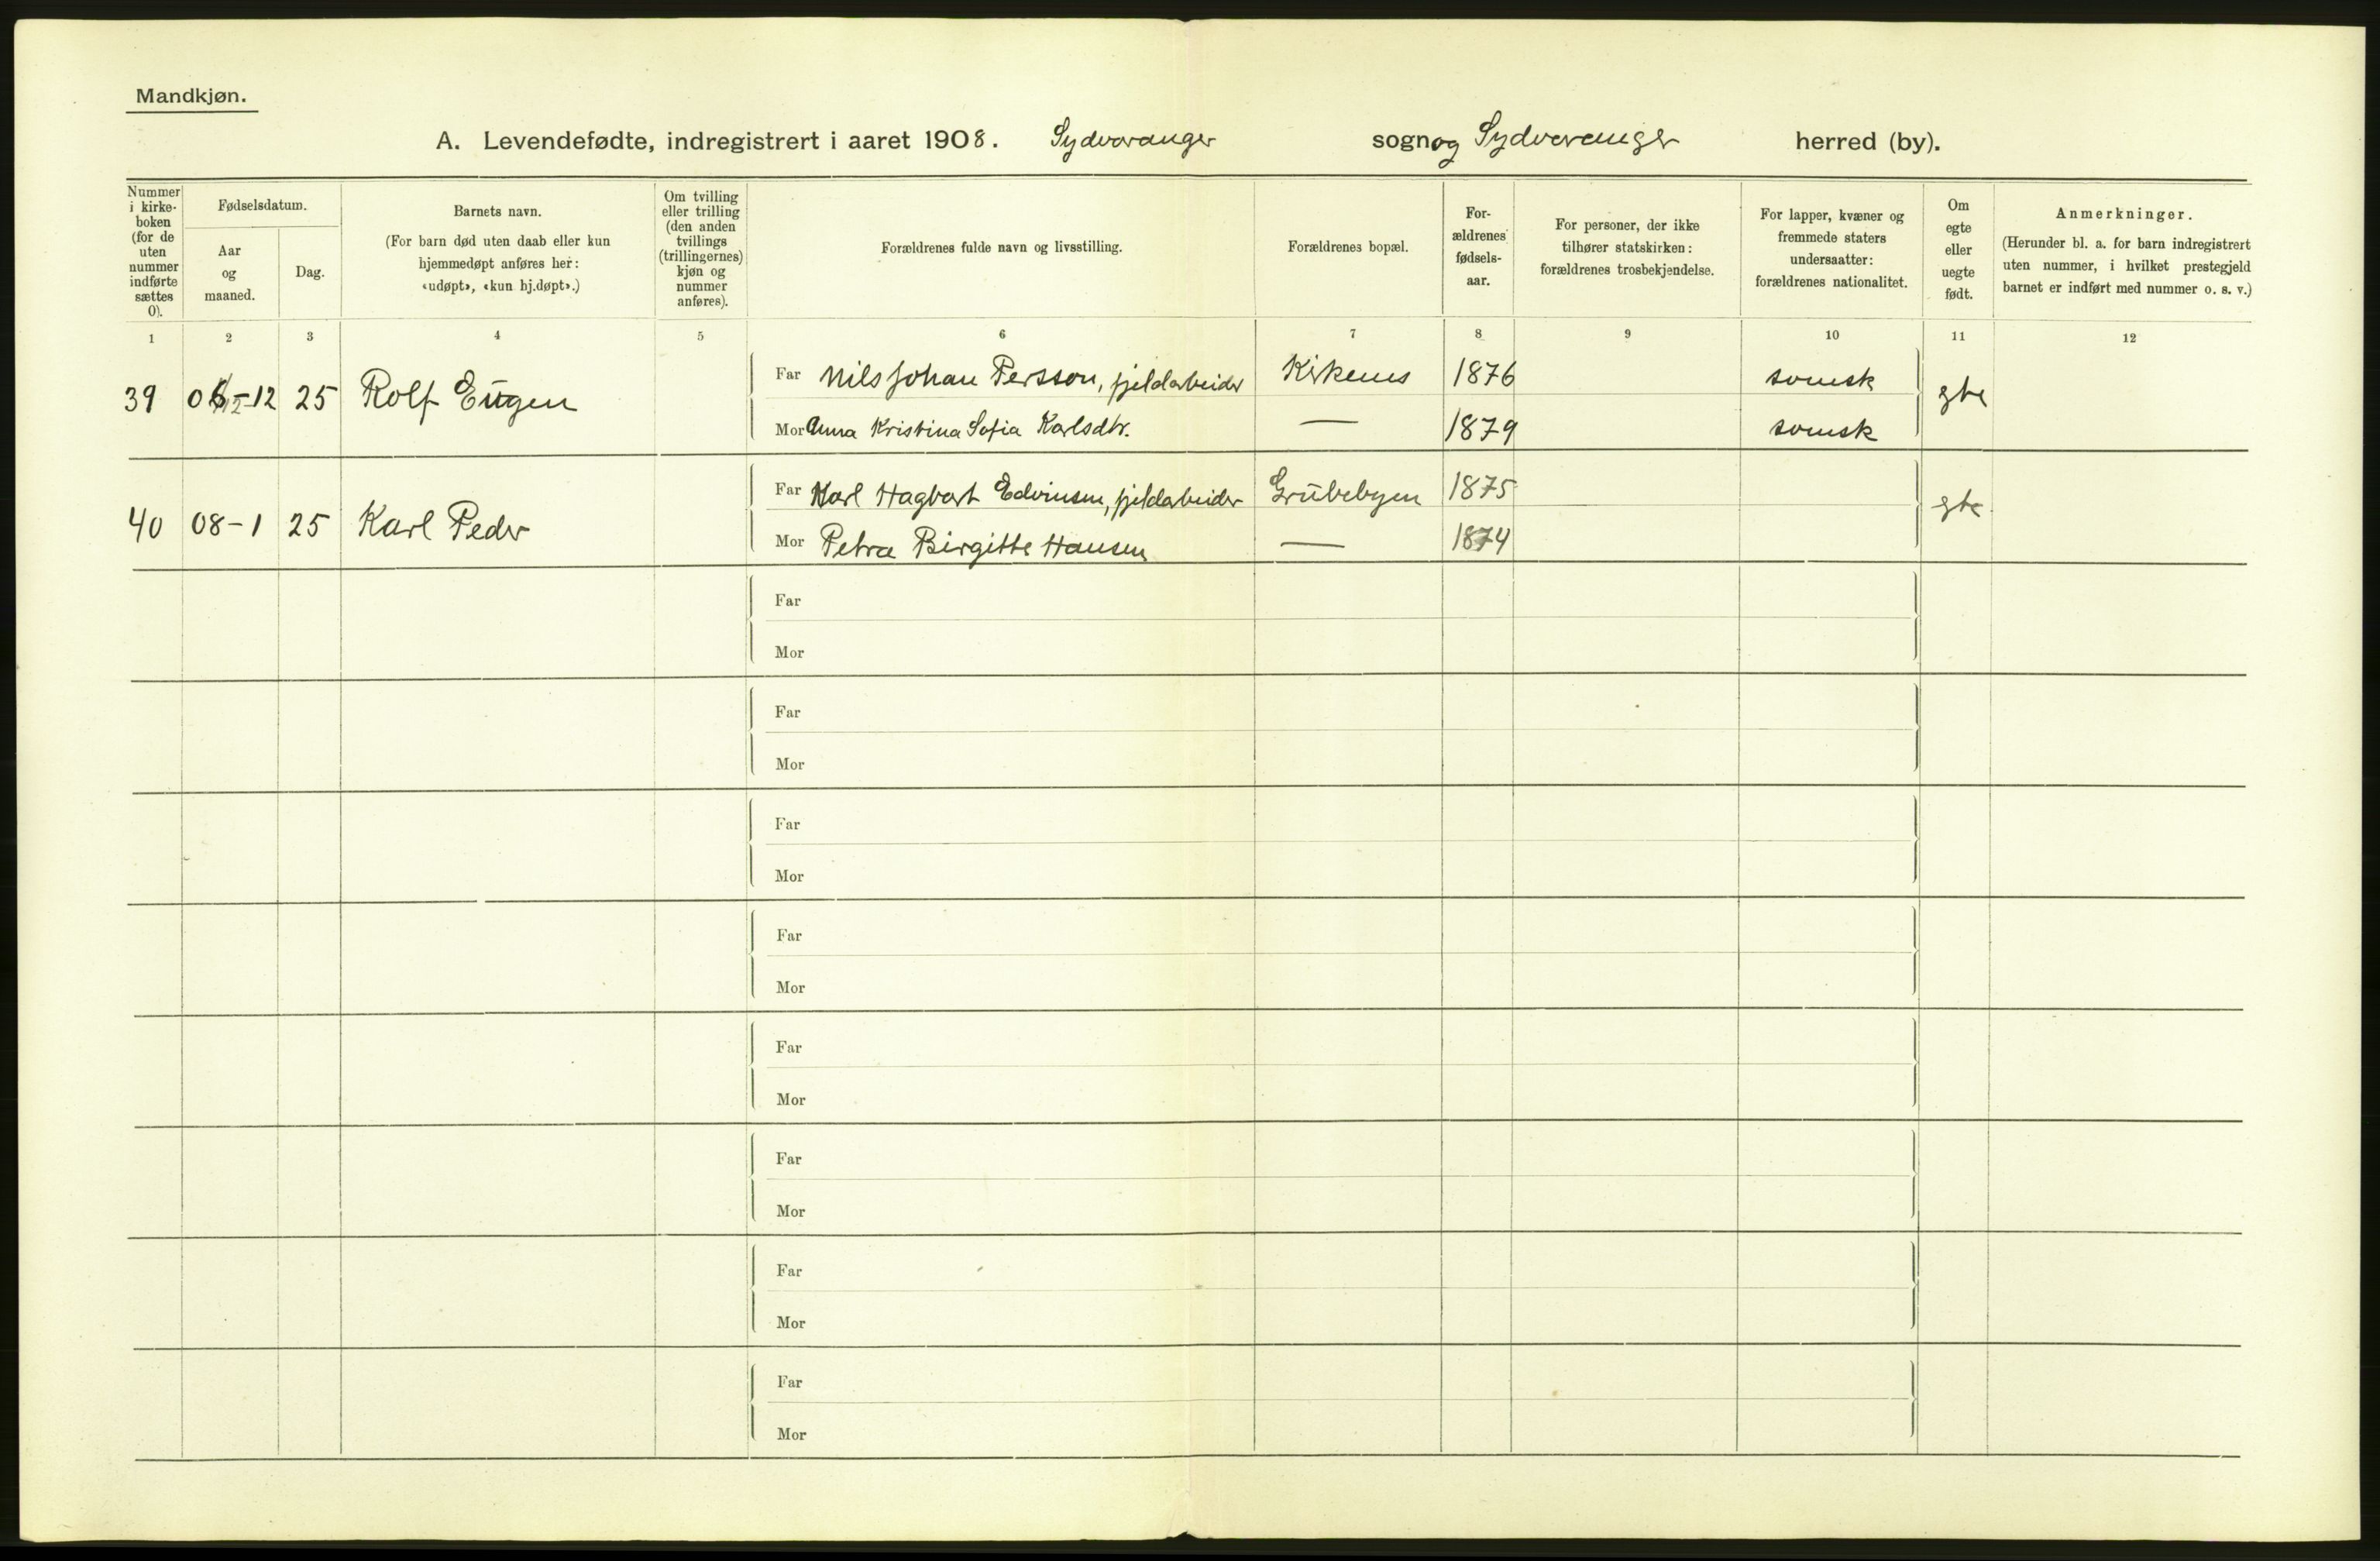 Mandkjøn.
A. Levendefødte, indregistrert i aaret 1908. Sydvaranger sogn og Sydvaranger herred (by).
Nummer i kirke-boken (for de uten nummer indførte sættes 0).
Fødselsdatum.
Aar og maaned.
Dag.
Barnets navn.
(For barn død uten daab eller kun hjemmedøpt anføres her: «udøpt», «kun hj.døpt».)
Om tvilling eller trilling (den anden tvillings (trillingernes) kjøn og nummer anføres).
Forældrenes fulde navn og livsstilling.
Forældrenes bopæl.
For-ældrenes fødsels-aar.
For personer, der ikke tilhører statskirken: forældrenes trosbekjendelse.
For lapper, kvæner og fremmede staters undersaatter: forældrenes nationalitet.
Om egte eller uegte født.
Anmerkninger.
(Herunder bl. a. for barn indregistrert uten nummer, i hvilket prestegjeld barnet er indført med nummer o. s. v.)
1 2 3 4 5 6 7 8 9 10 11 12
39 -12 25 Rolf Eugen
Far Nils Johan Persson, fjeldarbeider Kirkenes 1876 svensk egte
Mor Anna Kristina Sofia Karlsdtr. — 1879 svensk
40 08-1 25 Karl Peder
Far Karl Hagbart Edvinsen, fjeldarbeider Grubebyen 1875 egte
Mor Petra Birgitte Hansen — 1874
Far
Mor
Far
Mor
Far
Mor
Far
Mor
Far
Mor
Far
Mor
Far
Mor
Far
Mor